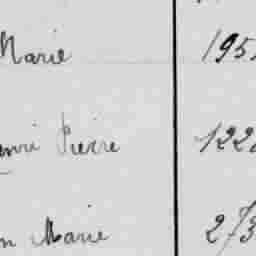 Marie 195
Pierre 122
Marie 273